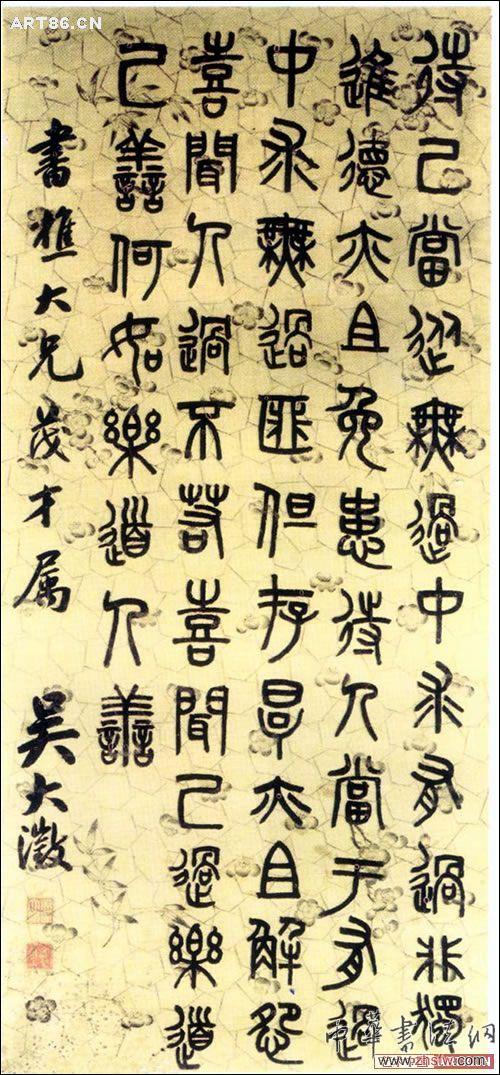 ART86.CN
待己當從無過中求有過非獨
進德亦且免患待人當于有過
中求無過匪但存厚亦且解怨
喜聞人過不若喜聞己過樂道
己善何如樂道人善
書樵大兄茂才属 吳大澂
中華書法網